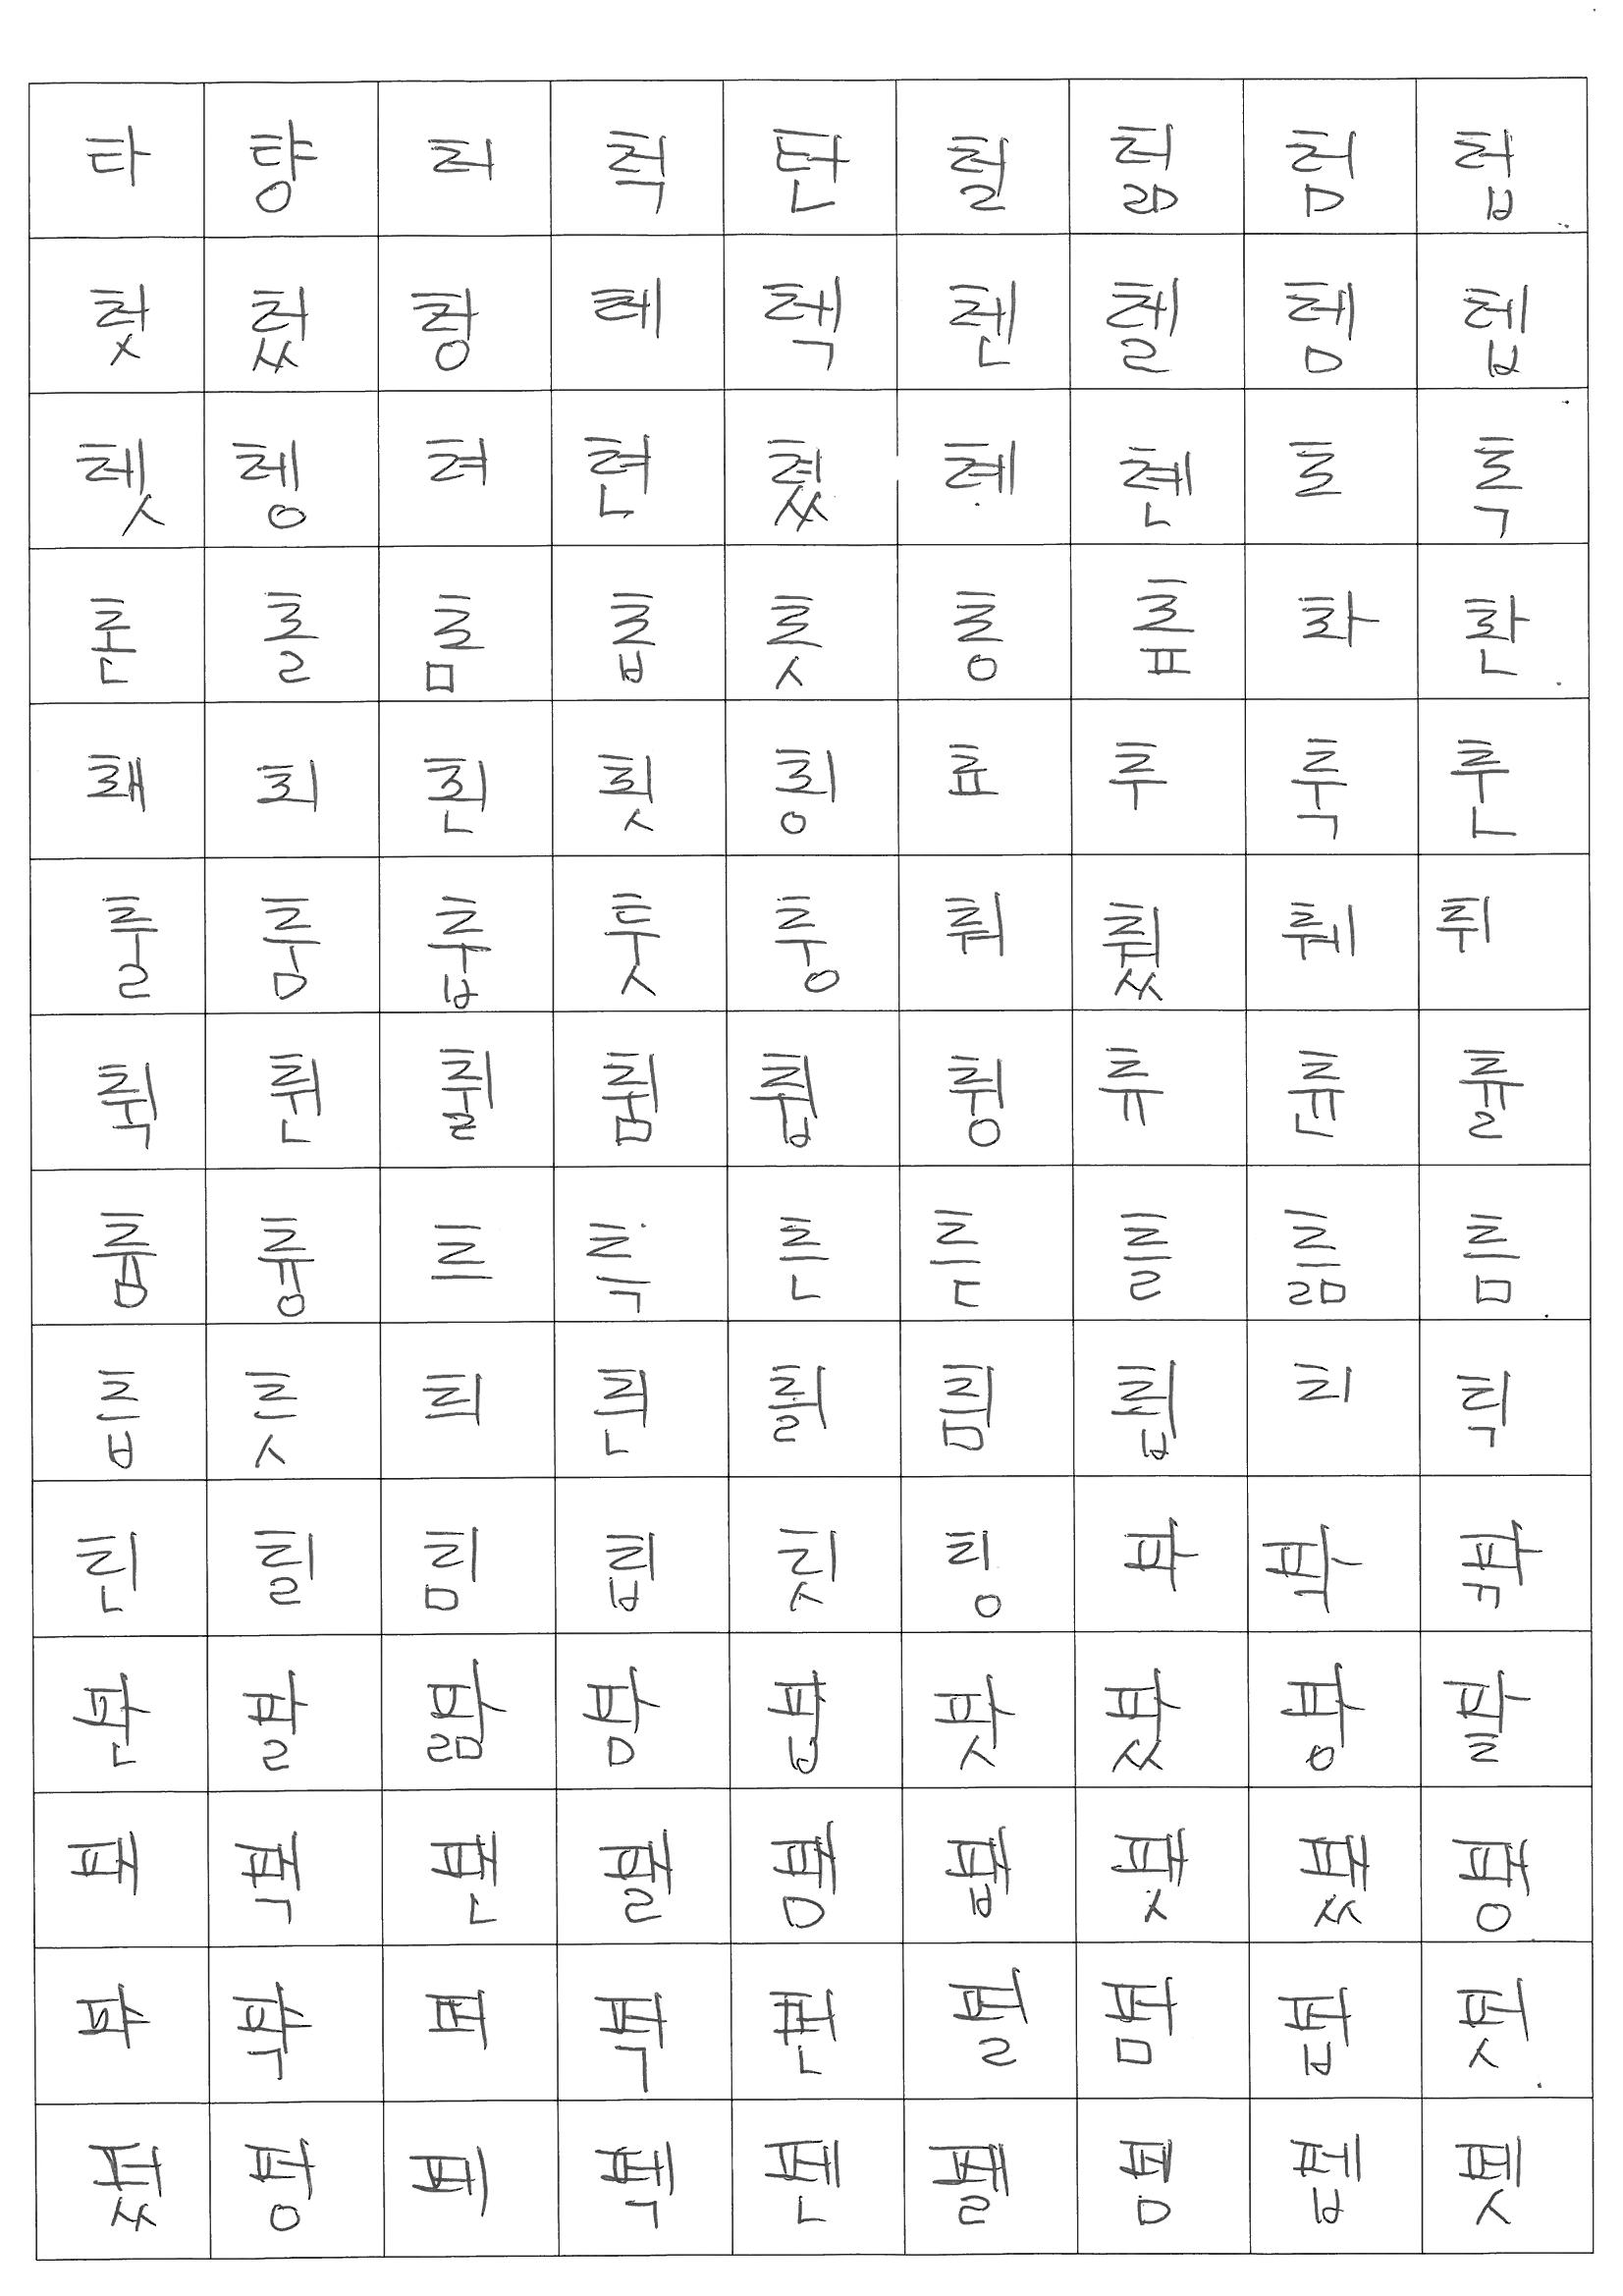 타 턍 터 턱 탄 털 턺 텀 텁
텃 텄 텅 테 텍 텐 텔 템 텝
텟 텡 텨 텬 텼 톄 톈 토 톡
톤 톨 톰 톱 톳 통 톺 톼 퇀
퇘 퇴 퇸 툇 툉 툐 투 툭 툰
툴 툼 툽 툿 퉁 퉈 퉜 퉤 튀
튁 튄 튈 튐 튑 튕 튜 튠 튤
튬 튱 트 특 튼 튿 틀 틂 틈
틉 틋 틔 틘 틜 틤 틥 티 틱
틴 틸 팀 팁 팃 팅 파 팍 팎
판 팔 팖 팜 팝 팟 팠 팡 팥
패 팩 팬 팰 팸 팹 팻 팼 팽
퍄 퍅 퍼 퍽 펀 펄 펌 펍 펏
펐 펑 페 펙 펜 펠 펨 펩 펫